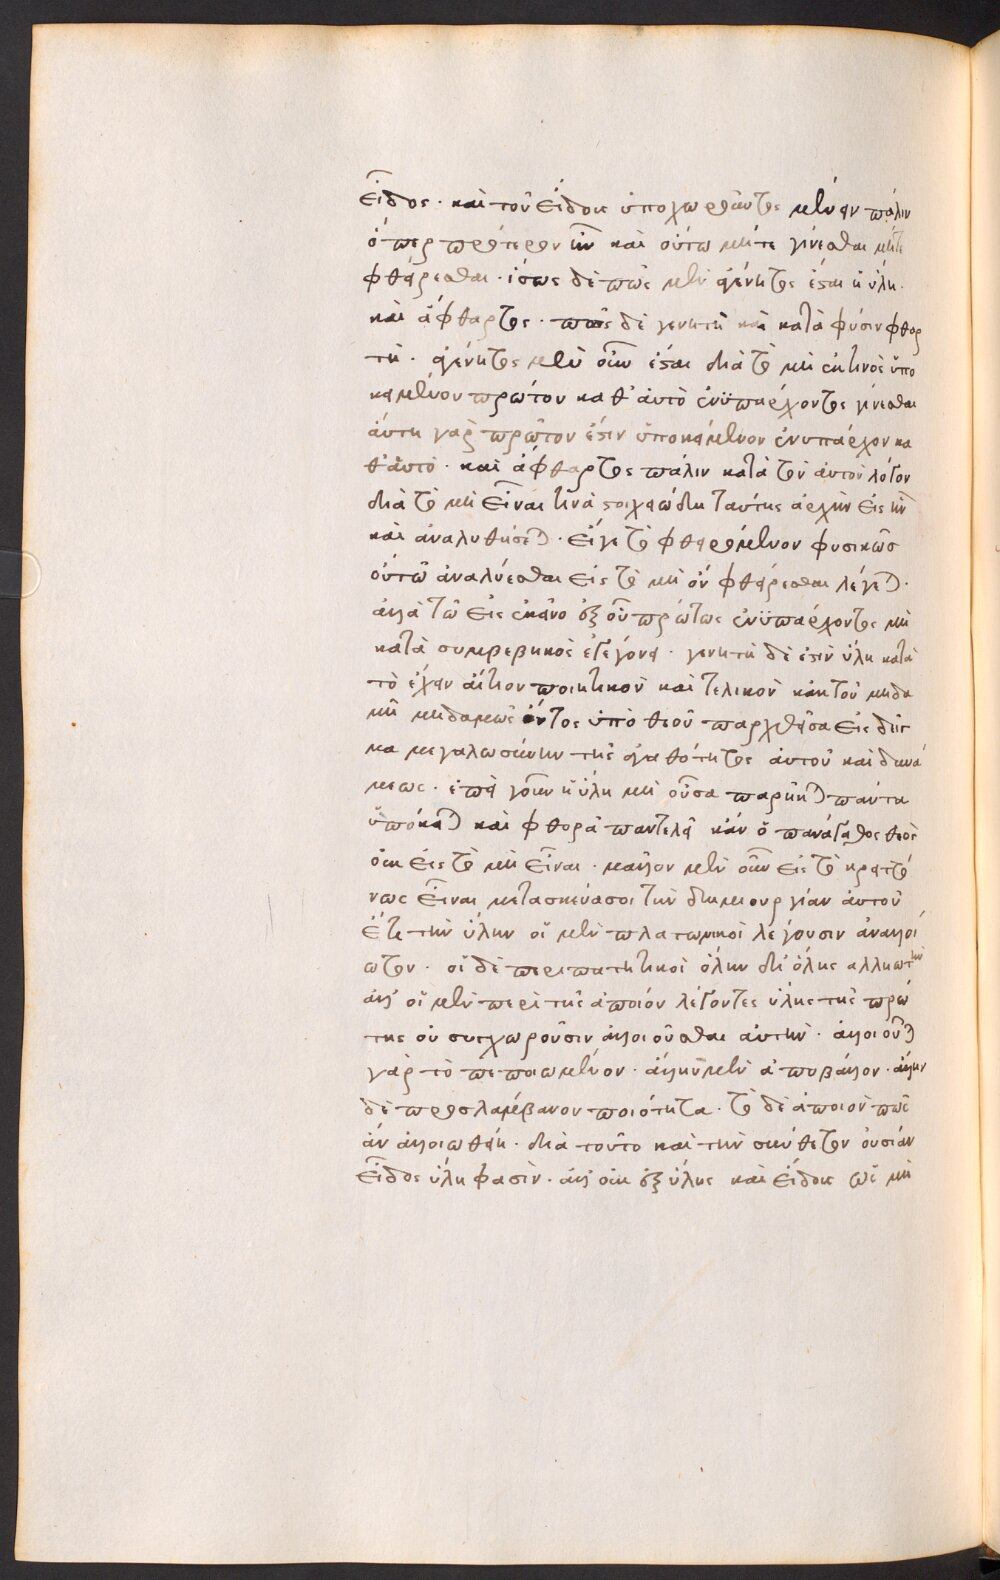 εἶδος · καὶ τοῦ εἴδους ὑποχωροῦντος μένειν πάλιν
ὅπερ πρότερον ἦν καὶ οὕτω μήτε γίνεσθαι μήτε
φθείρεσθαι · ἴσως δὲ πῶς μὲν ἀγένητος ἔσται ἡ ὕλη ·
καὶ ἄφθαρτος · πῶς δὲ γενητὴ καὶ κατὰ φύσιν φθαρ
τή · ἀγένητος μὲν οὖν ἔσται διὰ τὸ μὴ ἔκ τινος ὑπο
κειμένου πρώτου καθ' αὑτὸ ἐνϋπάρχοντος γίνεσθαι
αὕτη γὰρ πρῶτον ἐστὶν ὑποκείμενον ἐνυπάρχον κα
θ' αὑτό · καὶ ἄφθαρτος πάλιν κατὰ τὸν αὐτὸν λόγον
διὰ τὸ μὴ εἶναι τινὰ στοιχειώδη ταύτης ἀρχὴν εἰς ἣν
καὶ ἀναλυθήσεται · εἴγε τὸ φθειρόμενον φυσικῶς
οὕτω ἀναλύεσθαι εἰς τὸ μὴ ὂν φθείρεσθαι λέγεται ·
ἀλλὰ τῷ εἰς ἐκεῖνο ἐξ οὗ πρώτως ἐνϋπάρχοντος μὴ
κατὰ συμβεβηκὸς ἐγεγόνει · γενητὴ δὲ ἐστὶν ὕλη κατὰ
τὸ ἔχειν αἴτιον ποιητικὸν καὶ τελικὸν κἀκ τοῦ μηδα
μῆ μηδαμῶς ὄντος ὑπὸ θεοῦ παραχθεῖσα εἰς
μεγαλωσύνην τῆς ἀγαθότητος αὐτοῦ καὶ δυνά
μεως · ἐπεὶ γοῦν ἡ ὕλη μὴ οὖσα παρῆκται πάντα
ὑπόκειται καὶ φθορᾷ παντελεῖ κἂν ὁ πανάγαθος θεὸς
οὐκ εἰς τὸ μὴ εἶναι · μᾶλλον μὲν οὖν εἰς τὸ κρειττό
νως εἶναι μετασκευάσοι τὴν δημιουργίαν αὐτοῦ
Ἔτι τὴν ὕλην οἱ μὲν πλατωνικοὶ λέγουσιν ἀναλλοί
ωτον · οἱ δὲ περιπατητικοὶ ὅλην δι' ὅλης ἀλλοιωτήν
ἀλλ' οἱ μὲν περὶ τῆς ἀποίου λέγοντες ὕλης τῆς πρώ
της οὐ συγχωροῦσιν ἀλλοιοῦσθαι αὐτήν · ἀλλοιοῦται
γὰρ τὸ πεποιωμένον · ἄλλην μὲν ἀποβάλλον · ἄλλην
δὲ προσλαμβάνον ποιότητα · τὸ δὲ ἄποιον πῶς
ἂν ἀλλοιωθείη · διὰ τοῦτο καὶ τὴν σύνθετον οὐσίαν
εἶδος ὕλη φασὶν · ἀλλ' οὐκ ἐξ ὕλης καὶ εἴδους ὡς μὴ